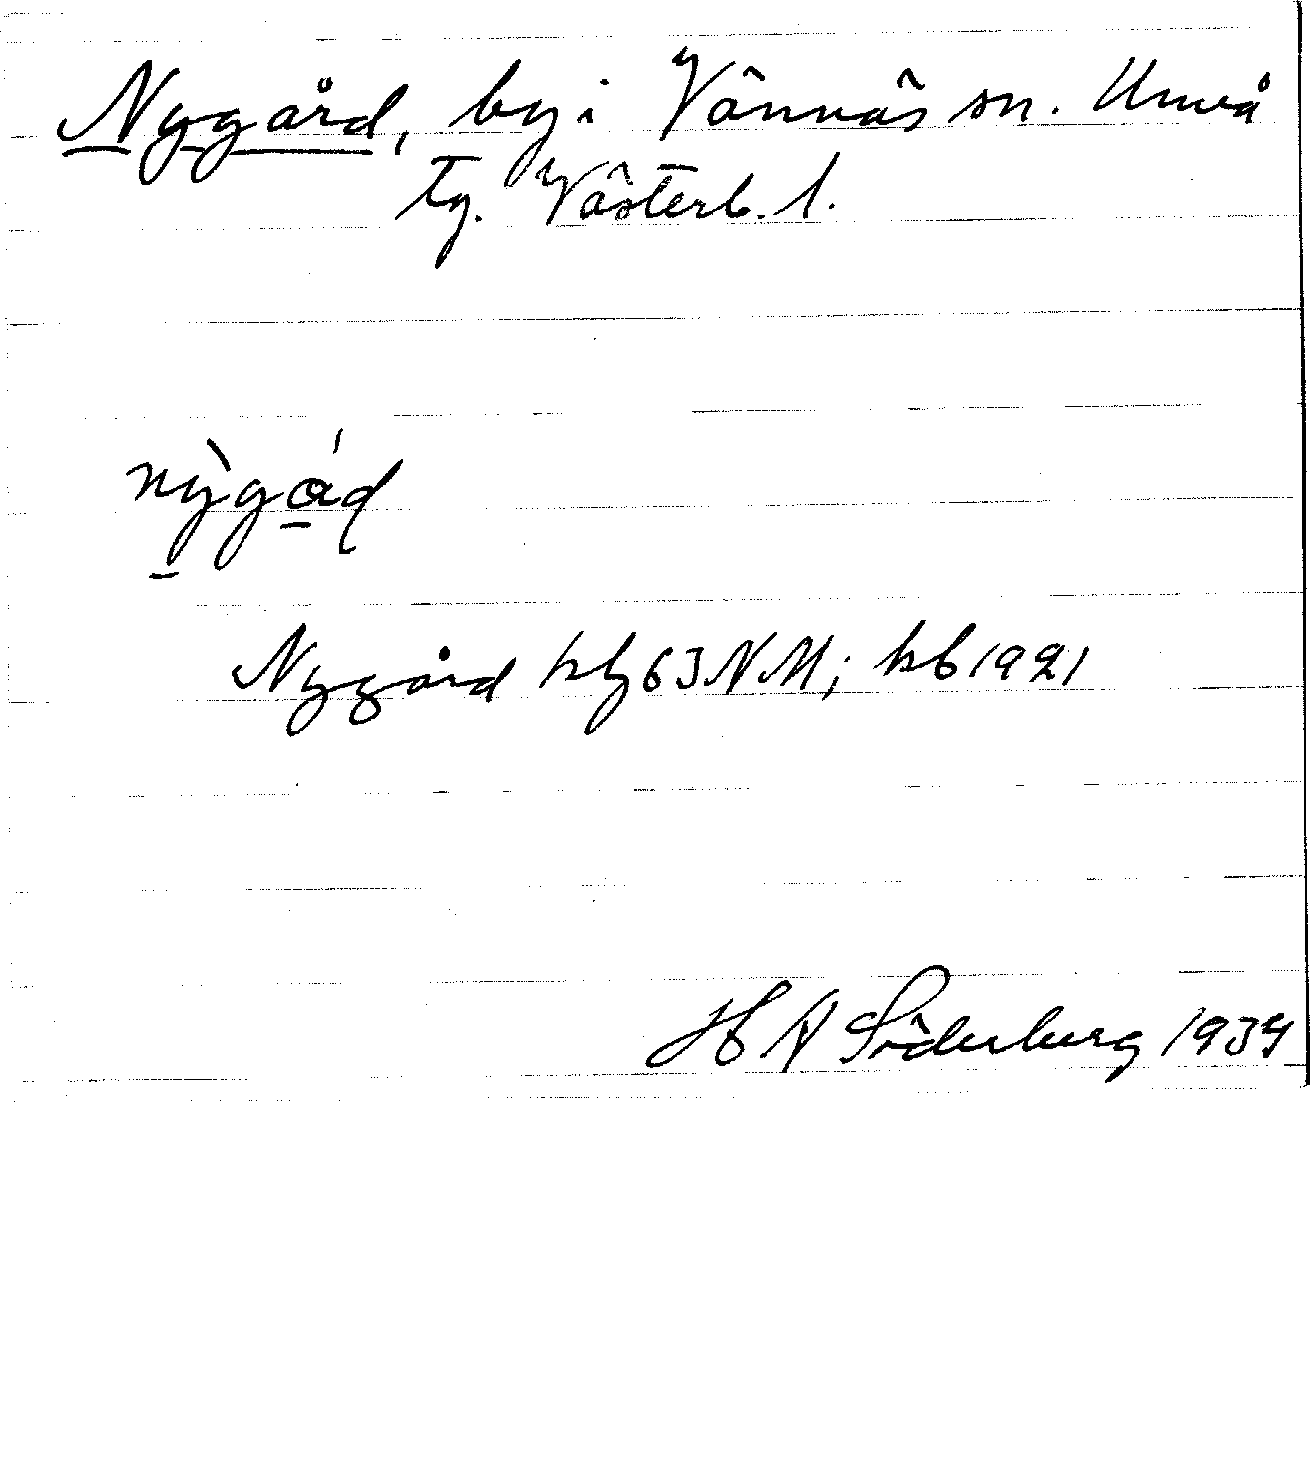 Nygård, by i Vännäs sn. Umeå
tg. Västerb. l.
nỳgá̲d
Nygård blz 63 NM; kb 1921
H A Söderberg 1939